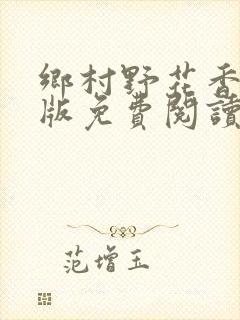 鄉村野花香
版免費閱讀
范增玉